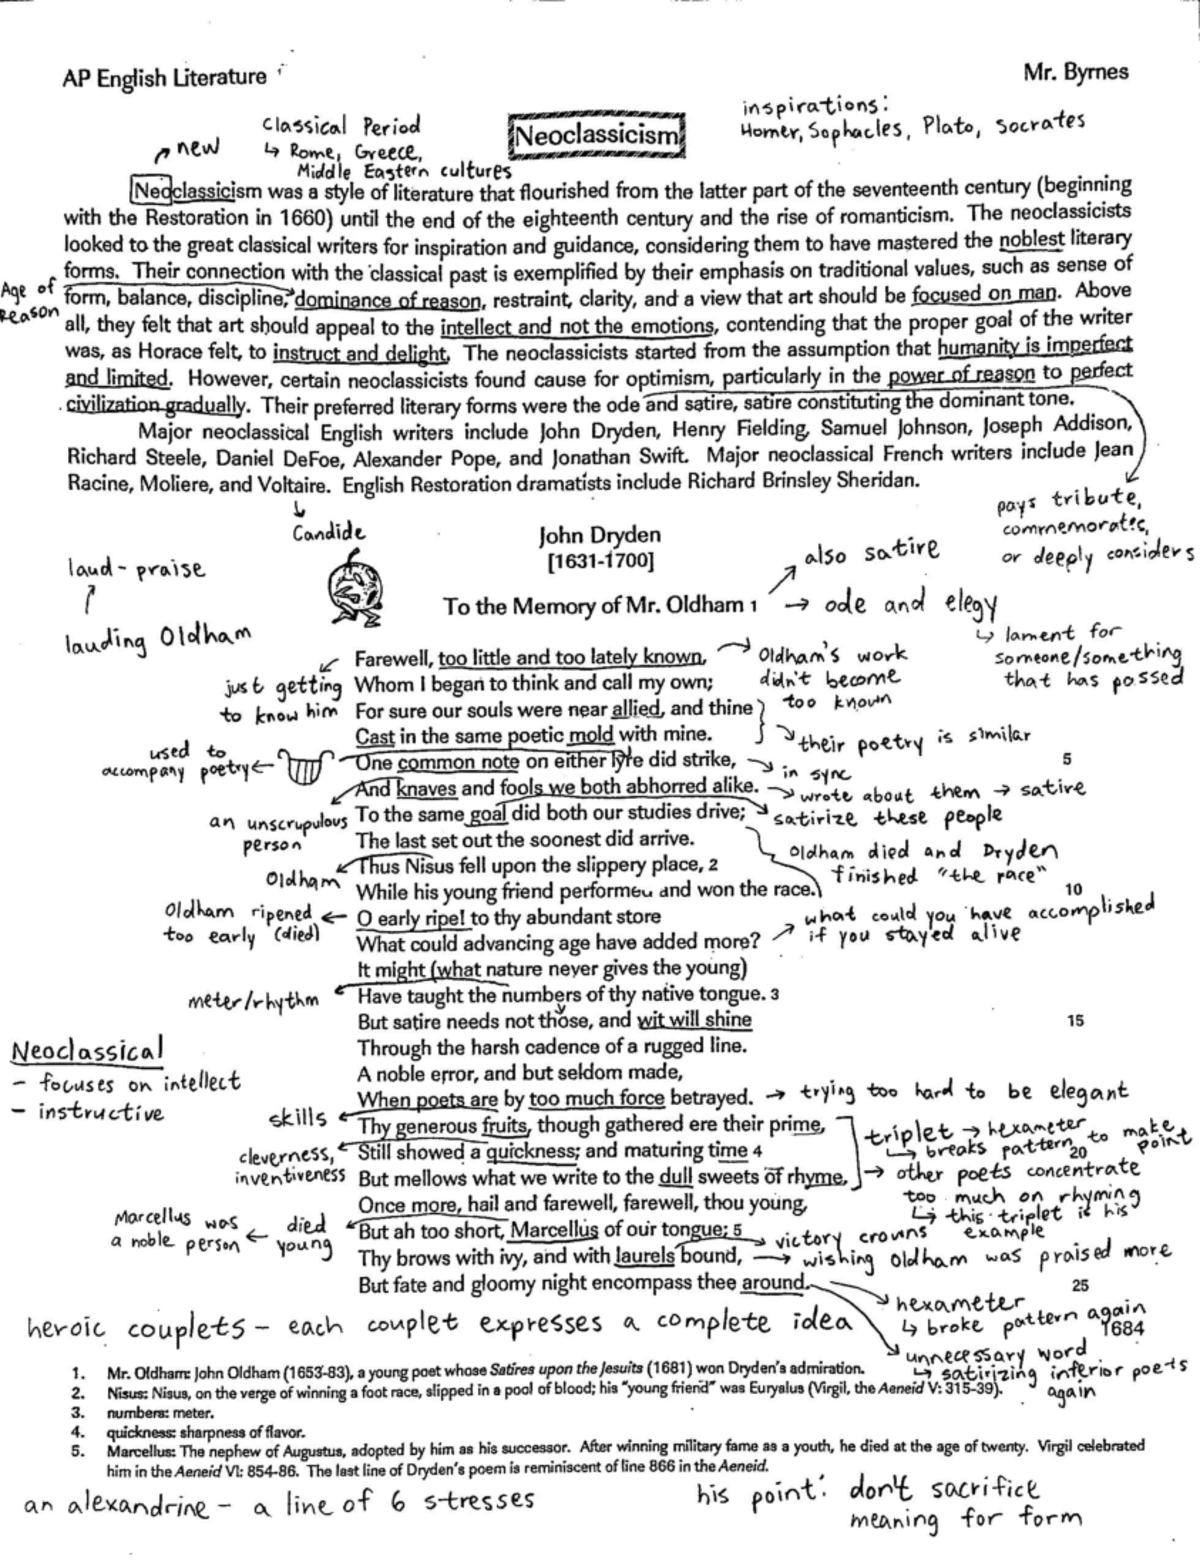 AP English Literature
Mr. Byrnes
Classical Period
↳ Rome, Greece,
Middle Eastern cultures
new
Neoclassicism
inspirations:
Homer, Sophacles, Plato, Socrates
Neoclassicism was a style of literature that flourished from the latter part of the seventeenth century (beginning
with the Restoration in 1660) until the end of the eighteenth century and the rise of romanticism. The neoclassicists
looked to the great classical writers for inspiration and guidance, considering them to have mastered the noblest literary
forms. Their connection with the classical past is exemplified by their emphasis on traditional values, such as sense of
form, balance, discipline, dominance of reason, restraint, clarity, and a view that art should be focused on man. Above
all, they felt that art should appeal to the intellect and not the emotions, contending that the proper goal of the writer
was, as Horace felt, to instruct and delight. The neoclassicists started from the assumption that humanity is imperfect
and limited. However, certain neoclassicists found cause for optimism, particularly in the power of reason to perfect
civilization gradually. Their preferred literary forms were the ode and satire, satire constituting the dominant tone.
Age of
Reason
Major neoclassical English writers include John Dryden, Henry Fielding, Samuel Johnson, Joseph Addison,
Richard Steele, Daniel DeFoe, Alexander Pope, and Jonathan Swift. Major neoclassical French writers include Jean
Racine, Moliere, and Voltaire. English Restoration dramatists include Richard Brinsley Sheridan.
Candide
pays tribute,
commemorates,
or deeply considers
laud - praise
lauding Oldham
John Dryden
[1631-1700]
also satire
To the Memory of Mr. Oldham 1
→ ode and elegy
↳ lament for
someone/something
that has passed
Farewell, too little and too lately known,
Oldham's work
didn't become
too known
Whom I began to think and call my own;
just getting
to know him
For sure our souls were near allied, and thine
Cast in the same poetic mold with mine.
their poetry is similar
One common note on either lyre did strike,
5
used to
accompany poetry
in sync
And knaves and fools we both abhorred alike.
wrote about them → satire
an unscrupulous
person
To the same goal did both our studies drive;
satirize these people
The last set out the soonest did arrive.
Oldham died and Dryden
finished "the race"
Thus Nisus fell upon the slippery place, 2
Oldham
While his young friend performed and won the race.
10
O early ripe! to thy abundant store
Oldham ripened
too early (died)
What could advancing age have added more?
what could you have accomplished
if you stayed alive
It might (what nature never gives the young)
Have taught the numbers of thy native tongue. 3
meter/rhythm
But satire needs not those, and wit will shine
15
Through the harsh cadence of a rugged line.
Neoclassical
- focuses on intellect
- instructive
A noble error, and but seldom made,
When poets are by too much force betrayed.
→ trying too hard to be elegant
Thy generous fruits, though gathered ere their prime,
skills
triplet → hexameter
↳ breaks pattern to make
point
Still showed a quickness; and maturing time 4
20
cleverness,
inventiveness
But mellows what we write to the dull sweets of rhyme,
→ other poets concentrate
too much on rhyming
↳ this triplet is his
example
Once more, hail and farewell, farewell, thou young,
But ah too short, Marcellus of our tongue; 5
died
young
Marcellus was
a noble person
victory crowns
Thy brows with ivy, and with laurels bound,
wishing Oldham was praised more
But fate and gloomy night encompass thee around.
25
hexameter
↳ broke pattern again
1684
unnecessary word
↳ satirizing inferior poets
again
heroic couplets - each couplet expresses a complete idea
1. Mr. Oldham: John Oldham (1653-83), a young poet whose Satires upon the Jesuits (1681) won Dryden's admiration.
2. Nisus: Nisus, on the verge of winning a foot race, slipped in a pool of blood; his "young friend" was Euryalus (Virgil, the Aeneid V: 315-39).
3. numbers: meter.
4. quickness: sharpness of flavor.
5. Marcellus: The nephew of Augustus, adopted by him as his successor. After winning military fame as a youth, he died at the age of twenty. Virgil celebrated
him in the Aeneid VI: 854-86. The last line of Dryden's poem is reminiscent of line 866 in the Aeneid.
an alexandrine - a line of 6 stresses
his point: don't sacrifice
meaning for form